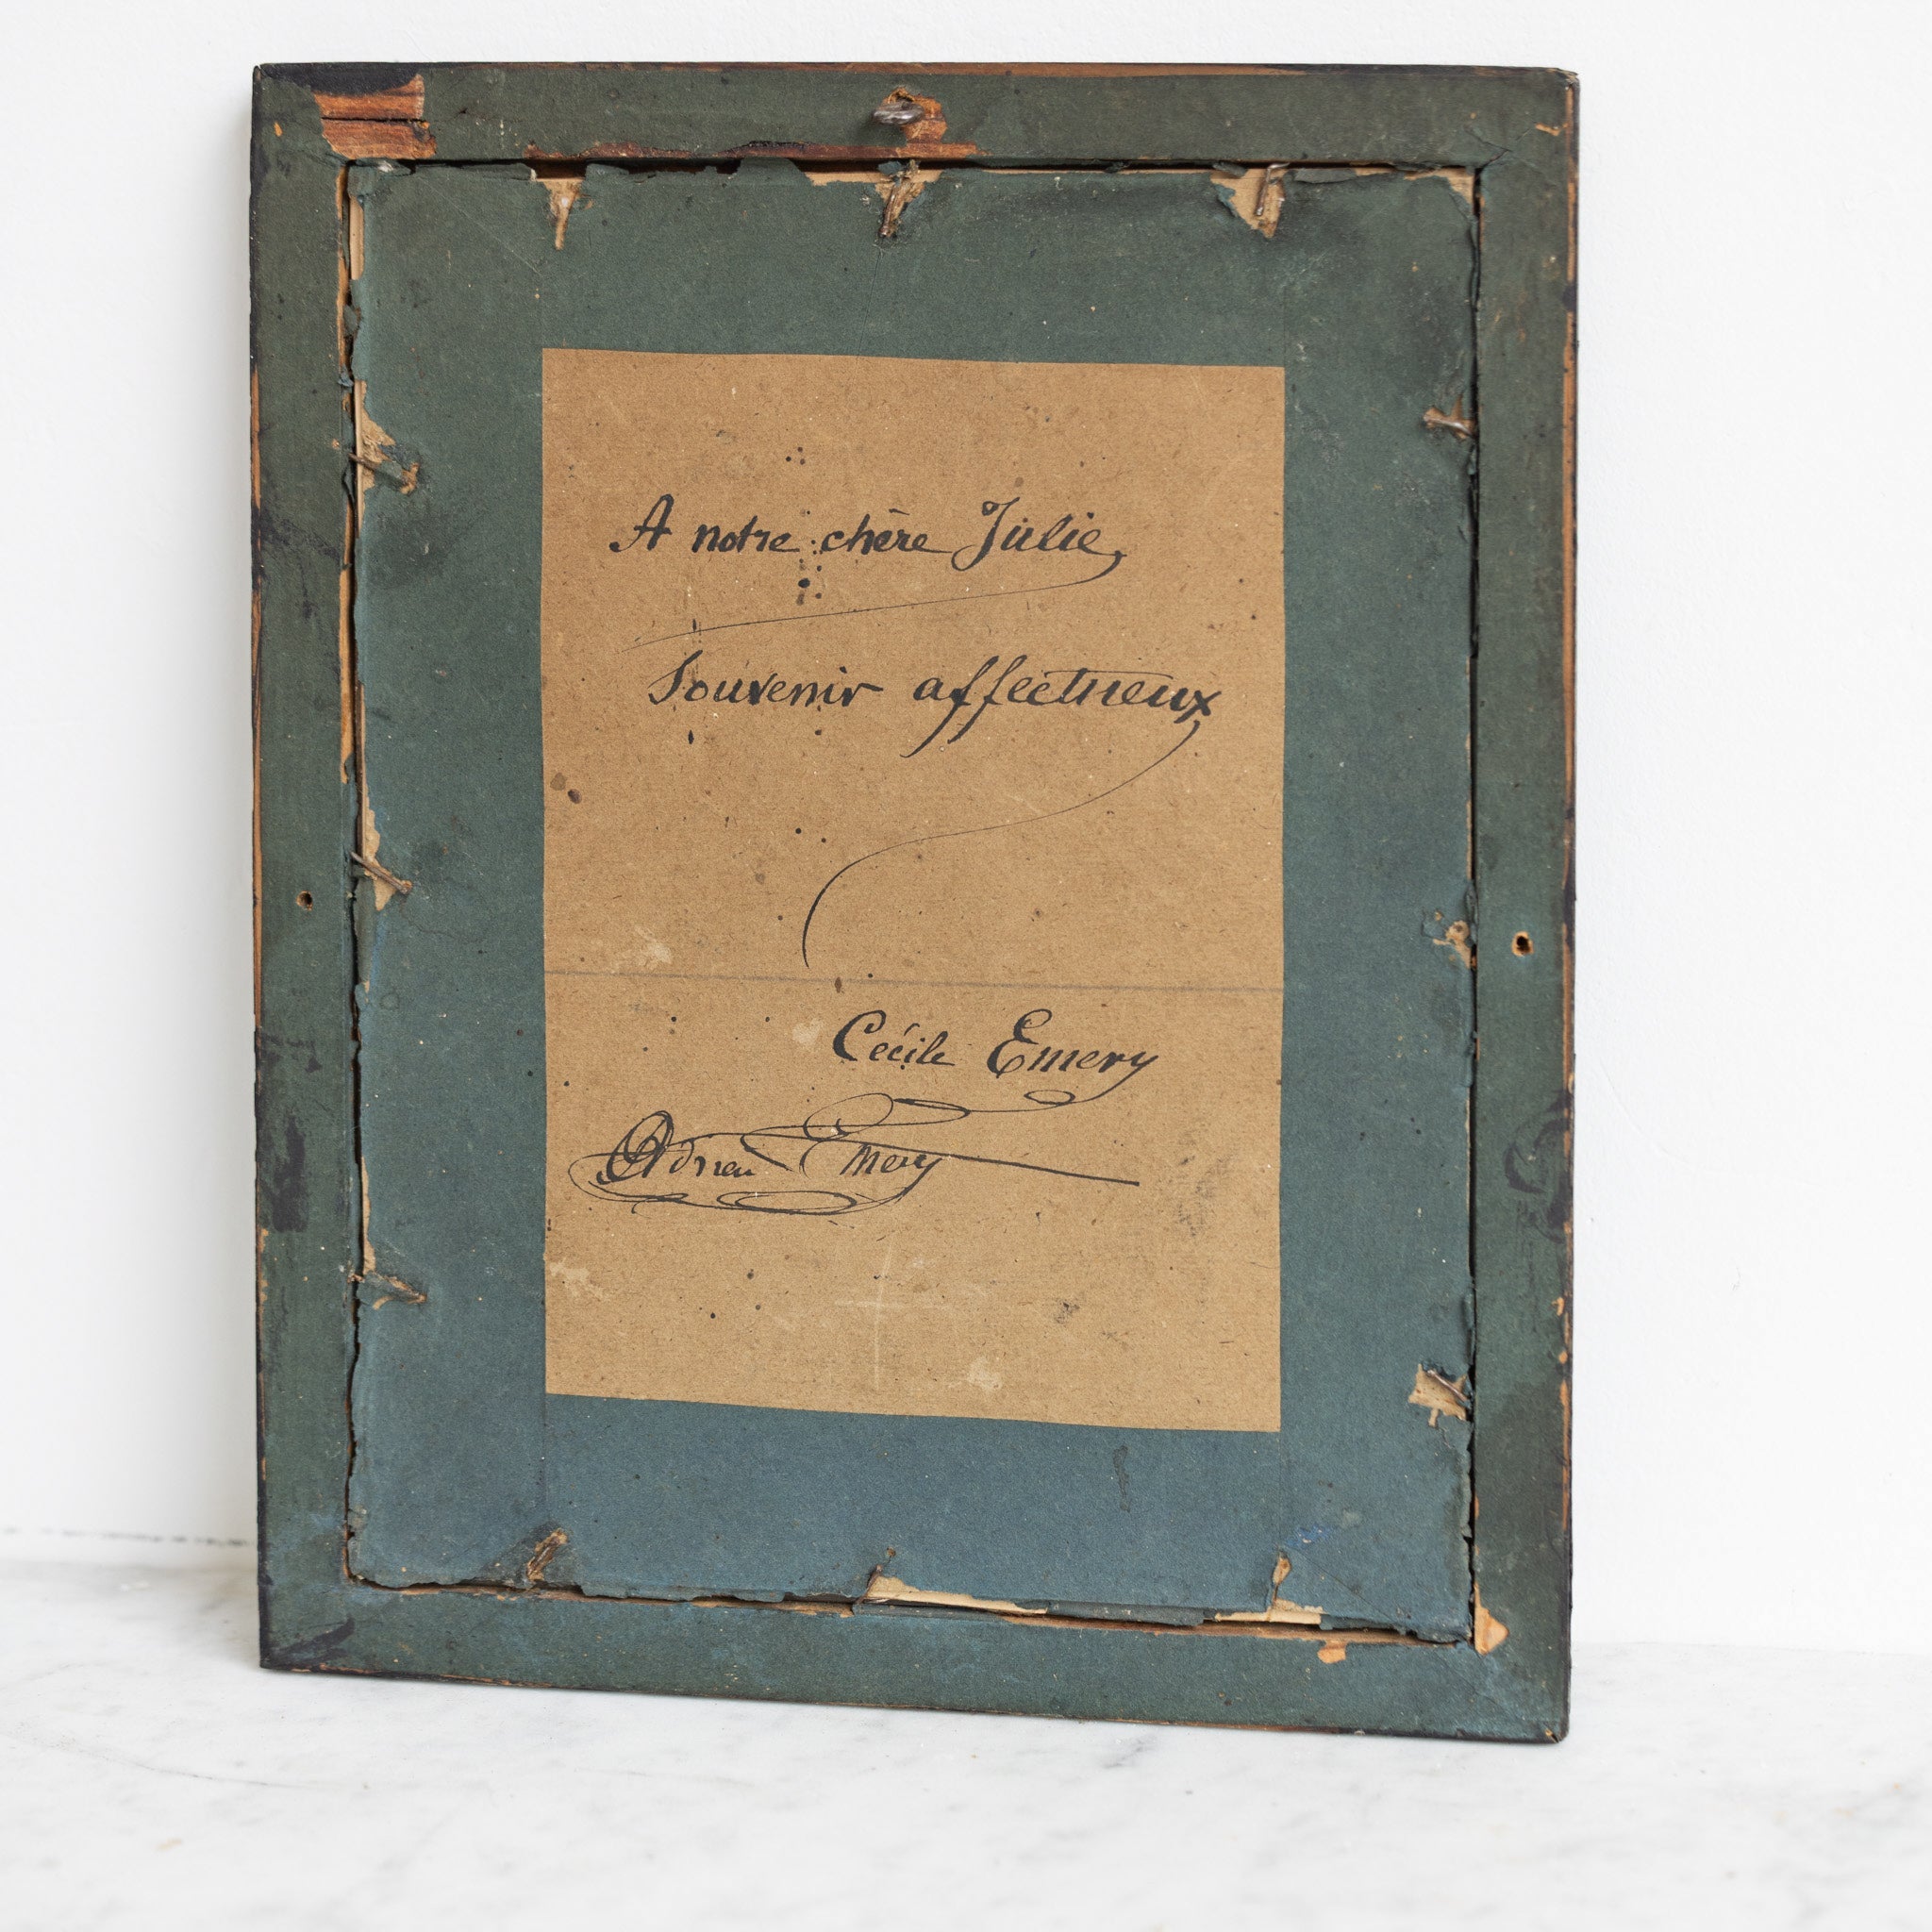 A notre chère Julie,
Souvenir affectueux
Cécile Emery
Adrien Emery